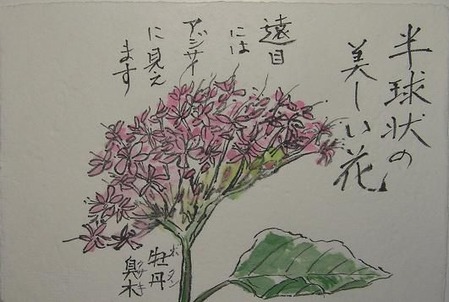 半球状の
美しい花
遠目
には
アジサイ
に見え
ます
牡丹
ボタン
臭木
クサギ